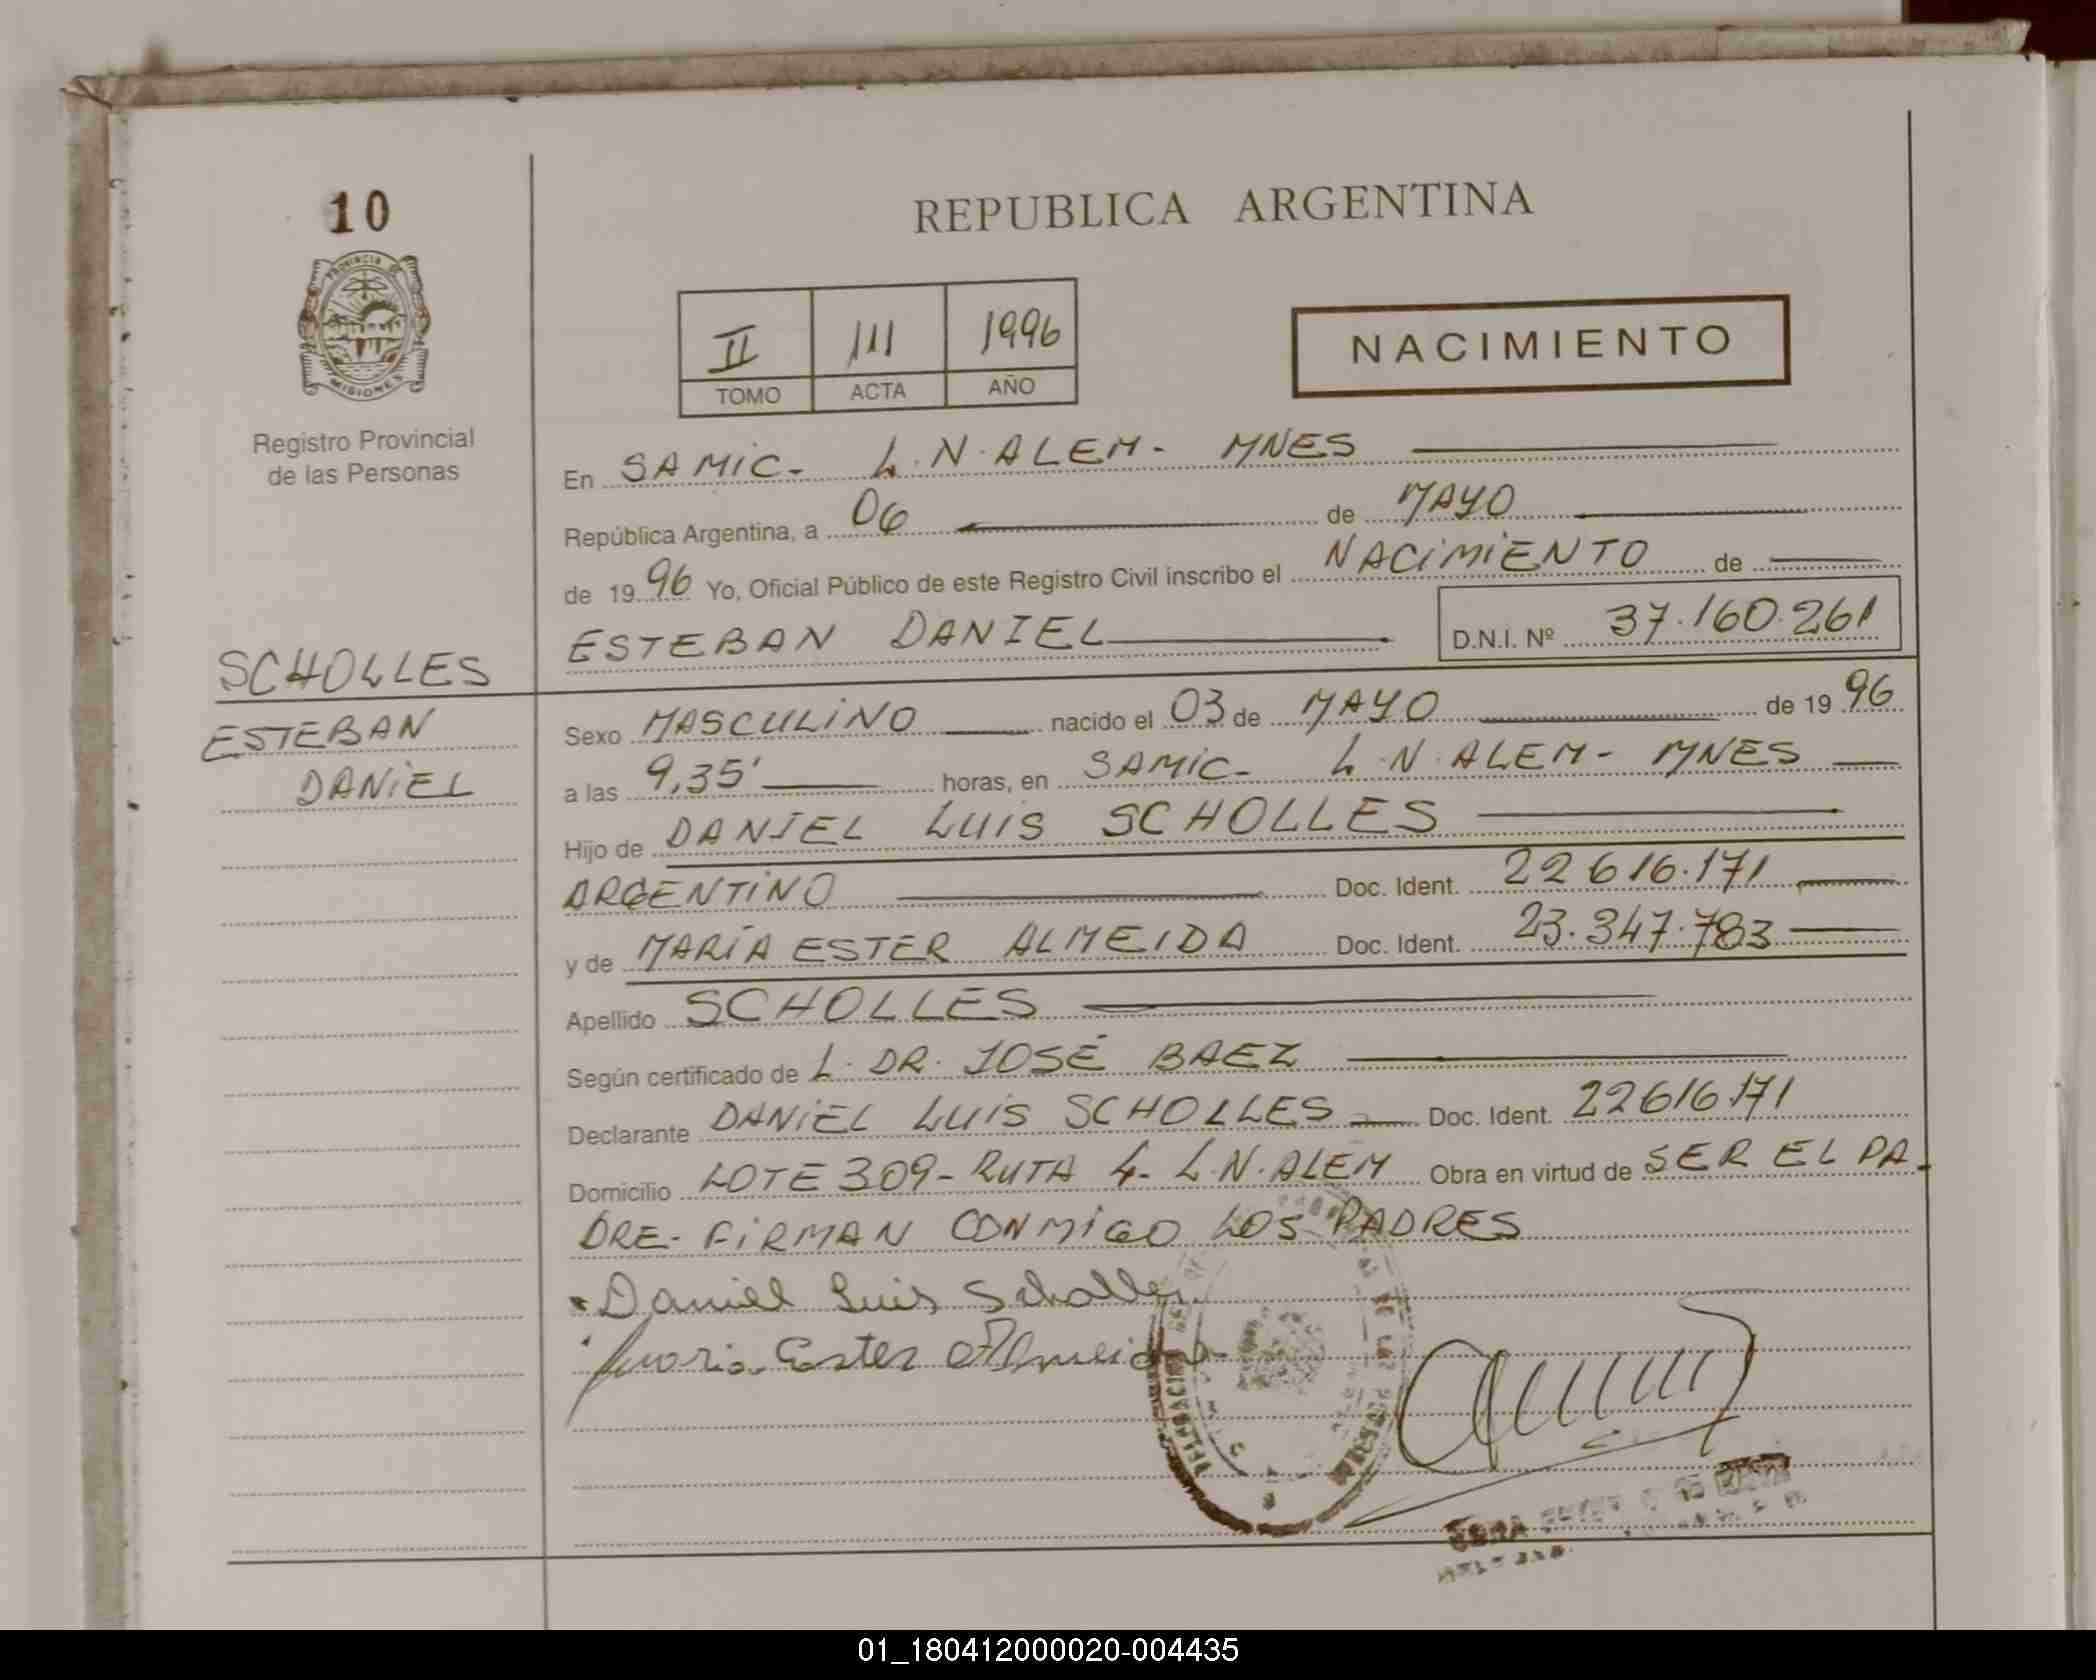 10
PROVINCIA DE
MISIONES
Registro Provincial
de las Personas
SCHOLLES
ESTEBAN
DANIEL
REPUBLICA ARGENTINA
II 111 1996
TOMO ACTA AÑO
NACIMIENTO
En SAMIC- L.N.ALEM- MNES
República Argentina, a 06 de MAYO
de 1996 Yo, Oficial Público de este Registro Civil inscribo el NACIMIENTO de
ESTEBAN DANIEL D.N.I. Nº 37.160.261
Sexo MASCULINO nacido el 03 de MAYO de 1996
a las 9,35' horas, en SAMIC- L.N.ALEM- MNES
Hijo de DANIEL LUIS SCHOLLES
ARGENTINO Doc. Ident. 22616.171
y de MARÍA ESTER ALMEIDA Doc. Ident. 23.347.783
Apellido SCHOLLES
Según certificado de L. DR. JOSÉ BAEZ
Declarante DANIEL LUIS SCHOLLES Doc. Ident. 22616171
Domicilio LOTE 309- RUTA 4- L.N.ALEM Obra en virtud de SER EL PA-
DRE- FIRMAN CONMIGO LOS PADRES
Daniel Luis Scholles
Maria Ester Almeida
01_180412000020-004435